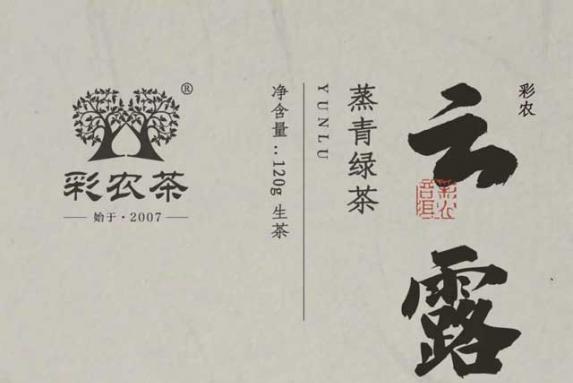 ®
彩农茶
始于·2007
净含量:120g 生茶
YUNLU
蒸青绿茶
云露
彩农